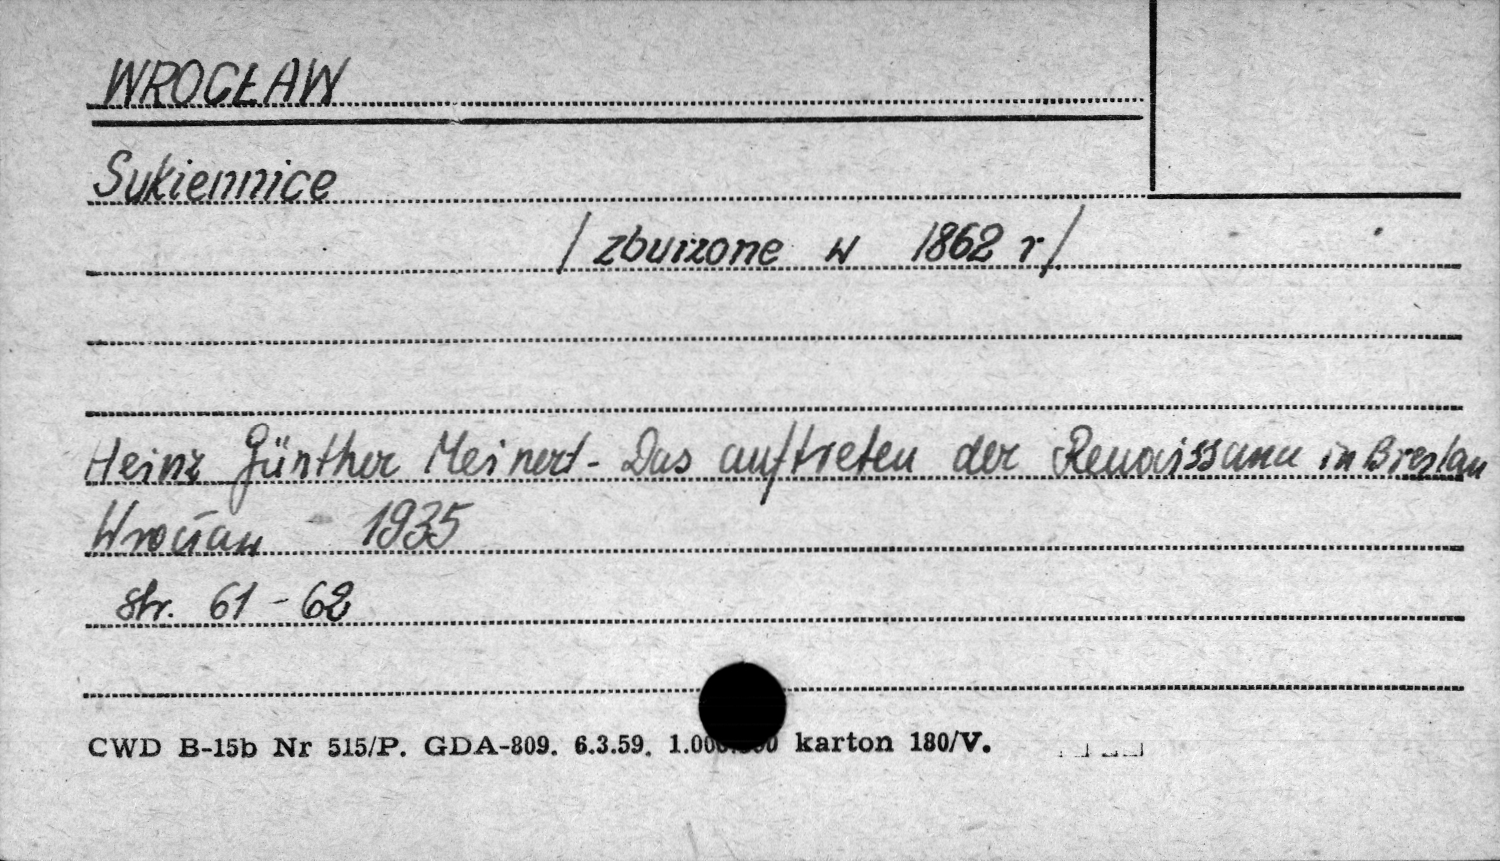 WROCŁAW
Sukiennice
/ zburzone w 1862 r /
Heinz Günther Meinert - Das auftreten der Renaissance in Breslau
Wrocław 1935
str. 61-62
CWD B-15b Nr 515/P. GDA-809. 6.3.59. karton 180/V.